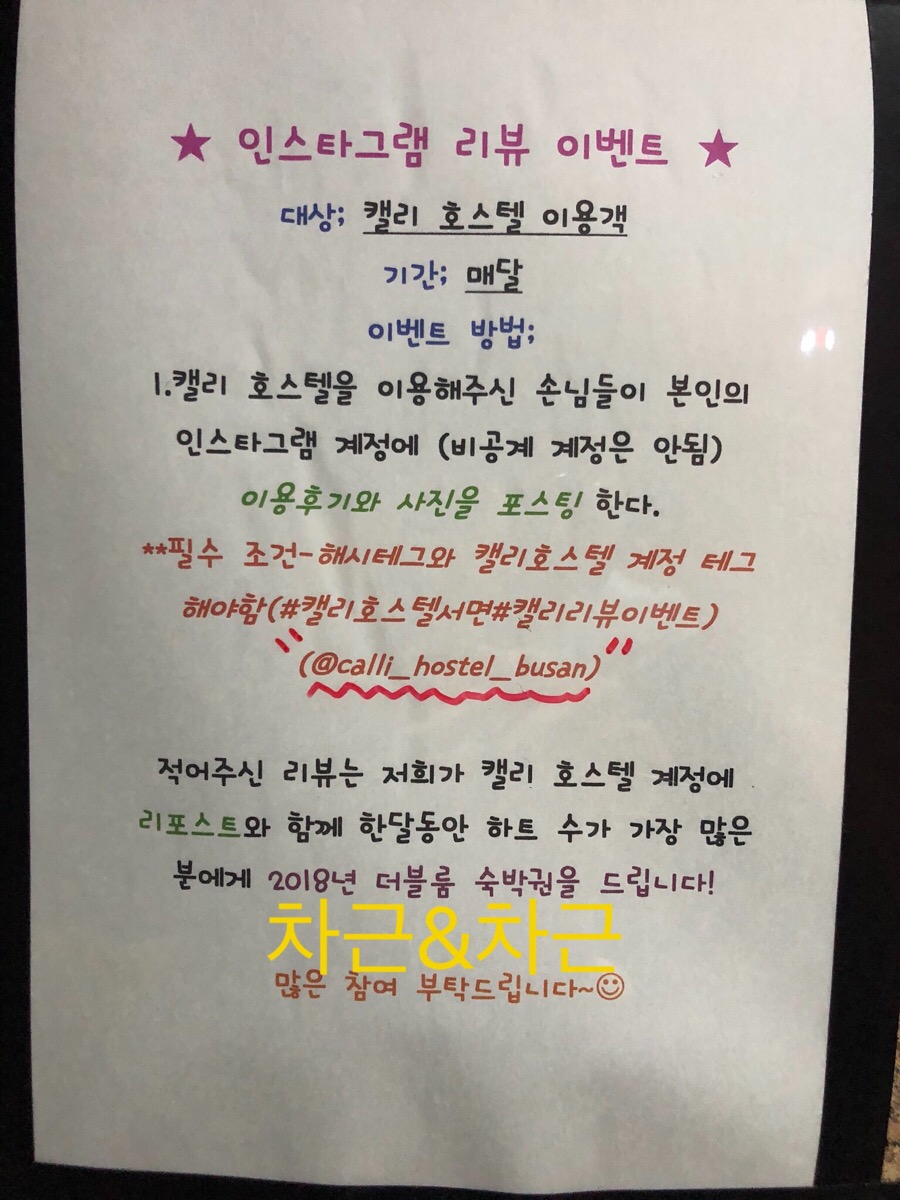 ★ 인스타그램 리뷰 이벤트 ★
대상; 캘리 호스텔 이용객
기간; 매달
이벤트 방법;
1.캘리 호스텔을 이용해주신 손님들이 본인의
인스타그램 계정에 (비공계 계정은 안됨)
이용후기와 사진을 포스팅 한다.
**필수 조건-해시테그와 캘리호스텔 계정 테그
해야함(#캘리호스텔서면#캘리리뷰이벤트)
"(@calli_hostel_busan)"
적어주신 리뷰는 저희가 캘리 호스텔 계정에
리포스트와 함께 한달동안 하트 수가 가장 많은
분에게 2018년 더블룸 숙박권을 드립니다!
차근&차근
많은 참여 부탁드립니다~☺